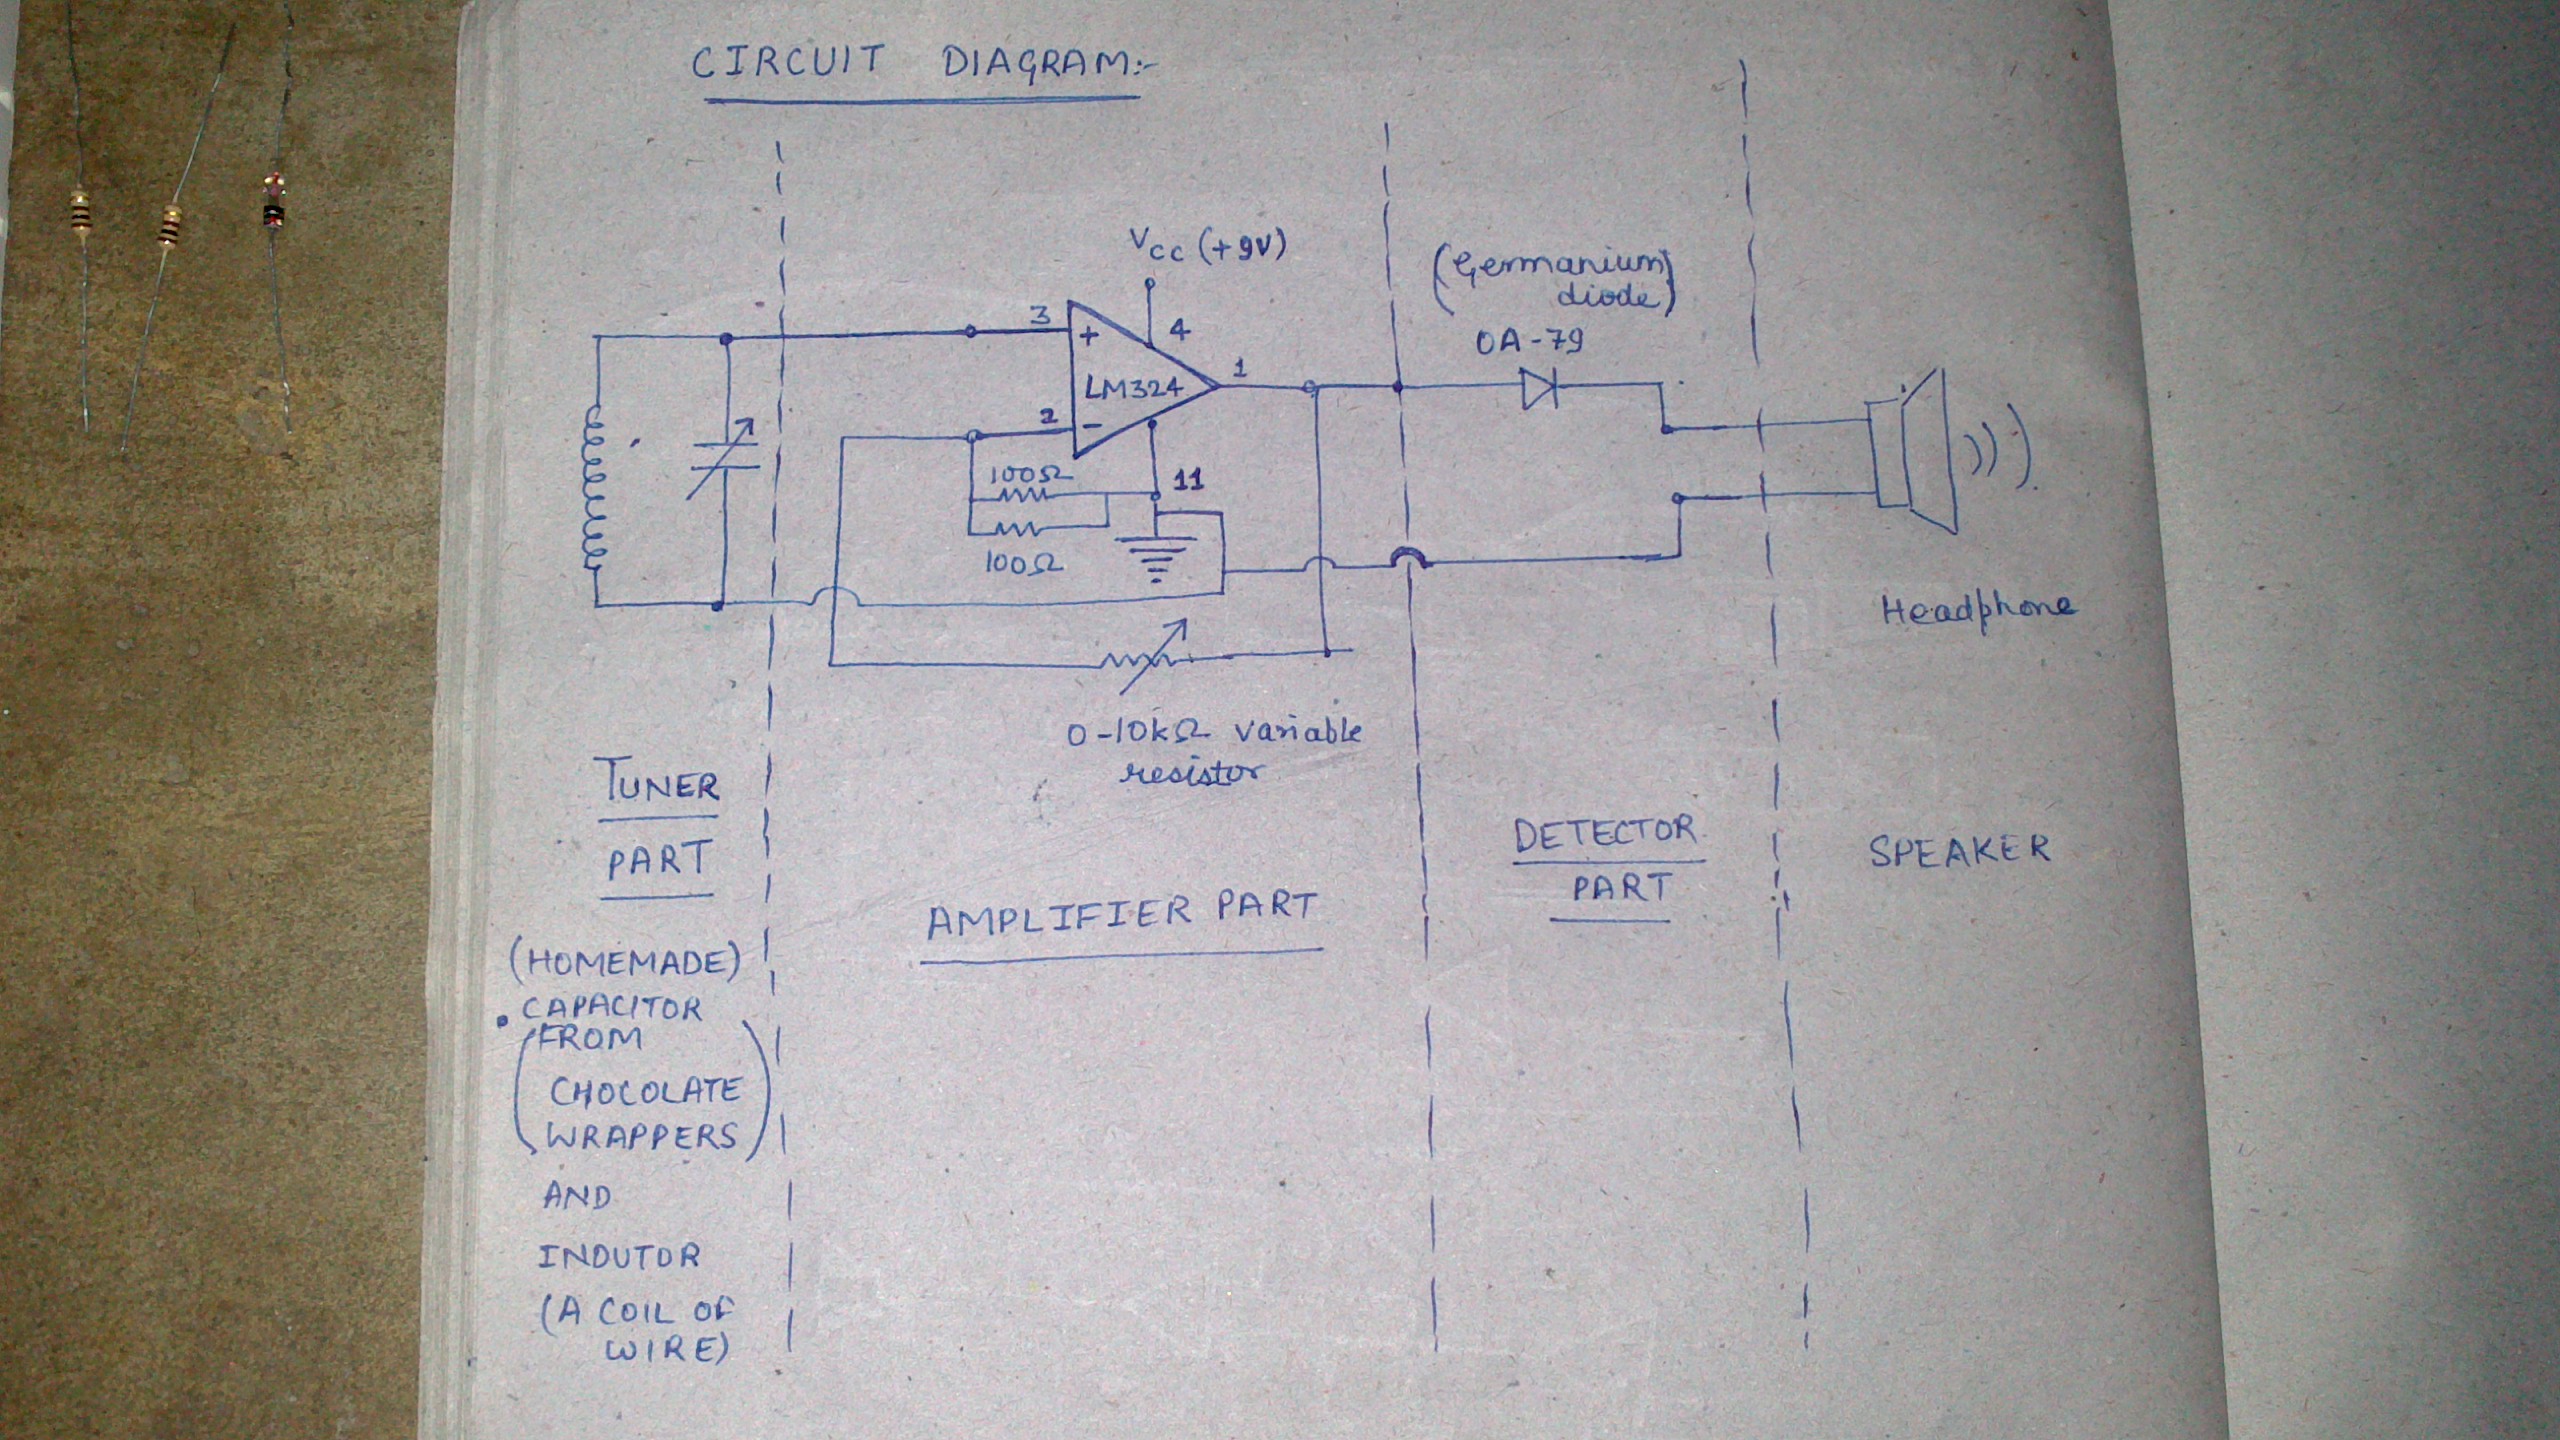 CIRCUIT DIAGRAM:-
Vcc (+9V)
(Germanium
diode)
OA-79
3
+
4
LM324
1
2
-
100Ω
11
100Ω
Headphone
0-10kΩ variable
resistor
TUNER
PART
AMPLIFIER PART
DETECTOR
PART
SPEAKER
(HOMEMADE)
• CAPACITOR
(FROM
CHOCOLATE
WRAPPERS)
AND
INDUTOR
(A COIL OF
WIRE)